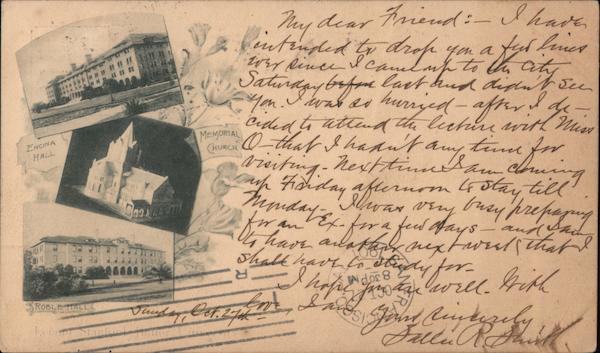 My dear Friend:- I have
intended to drop you a few lines
ever since I came up to the city
Saturday before last and didn't see
you. I was so hurried - after I de-
cided to attend the lecture with Miss
O - that I hadn't any time for
visiting. Next time I am coming
up Friday afternoon to stay till
Monday - I was very busy preparing
for an Ex. for a few days - and I am
to have another next week that I
shall have to study for -
I hope you are well. With
love, I am Yours sincerely
Sallie R. Smith.
Sunday, Oct. 27th
ENCINA
HALL
MEMORIAL
CHURCH
ROBLE HALL
OCT
8 30 PM